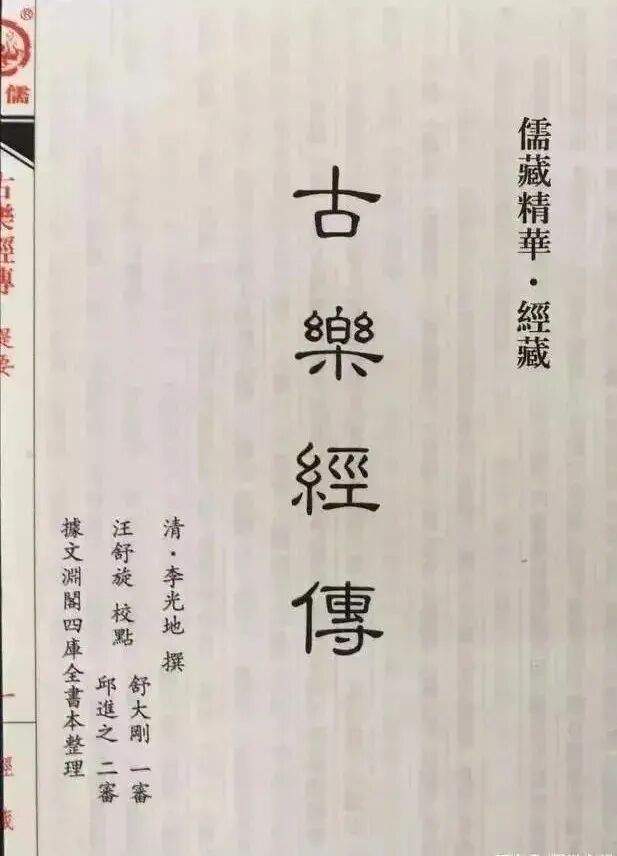 儒藏精華·經藏
古樂經傳
清·李光地 撰
汪舒旋 校點
舒大剛 一審
邱進之 二審
據文淵閣四庫全書本整理
®
儒
古樂經傳 提要
一
經藏